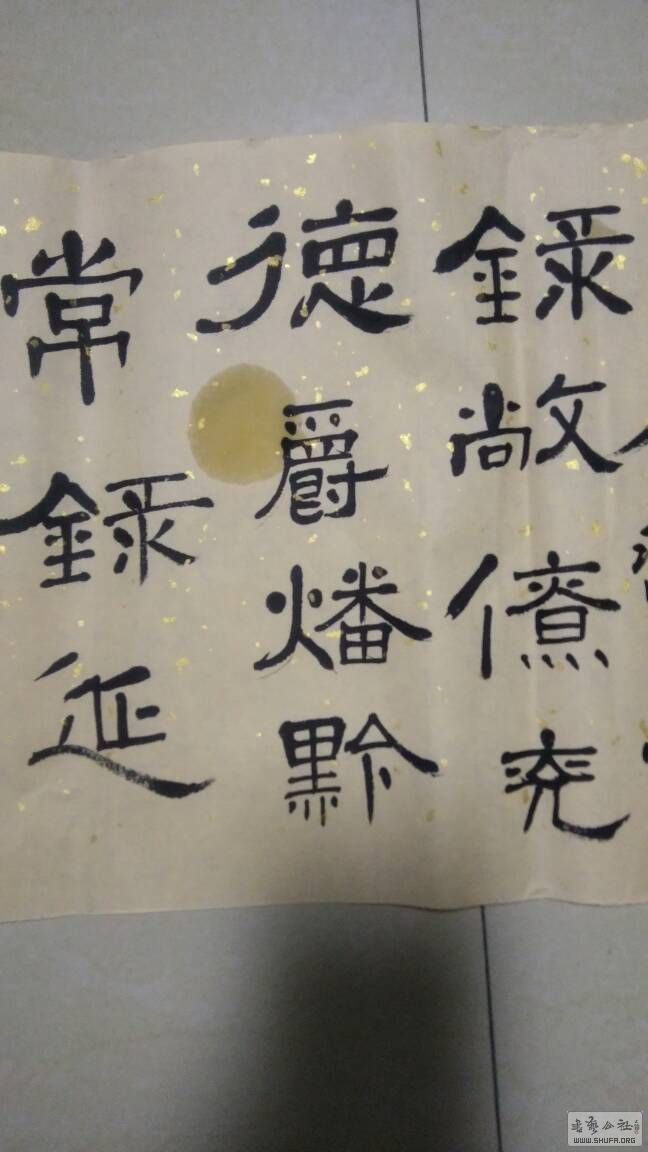 錄敞僚充
德爵燔黔
常錄延
书艺公社
WWW.SHUFA.ORG